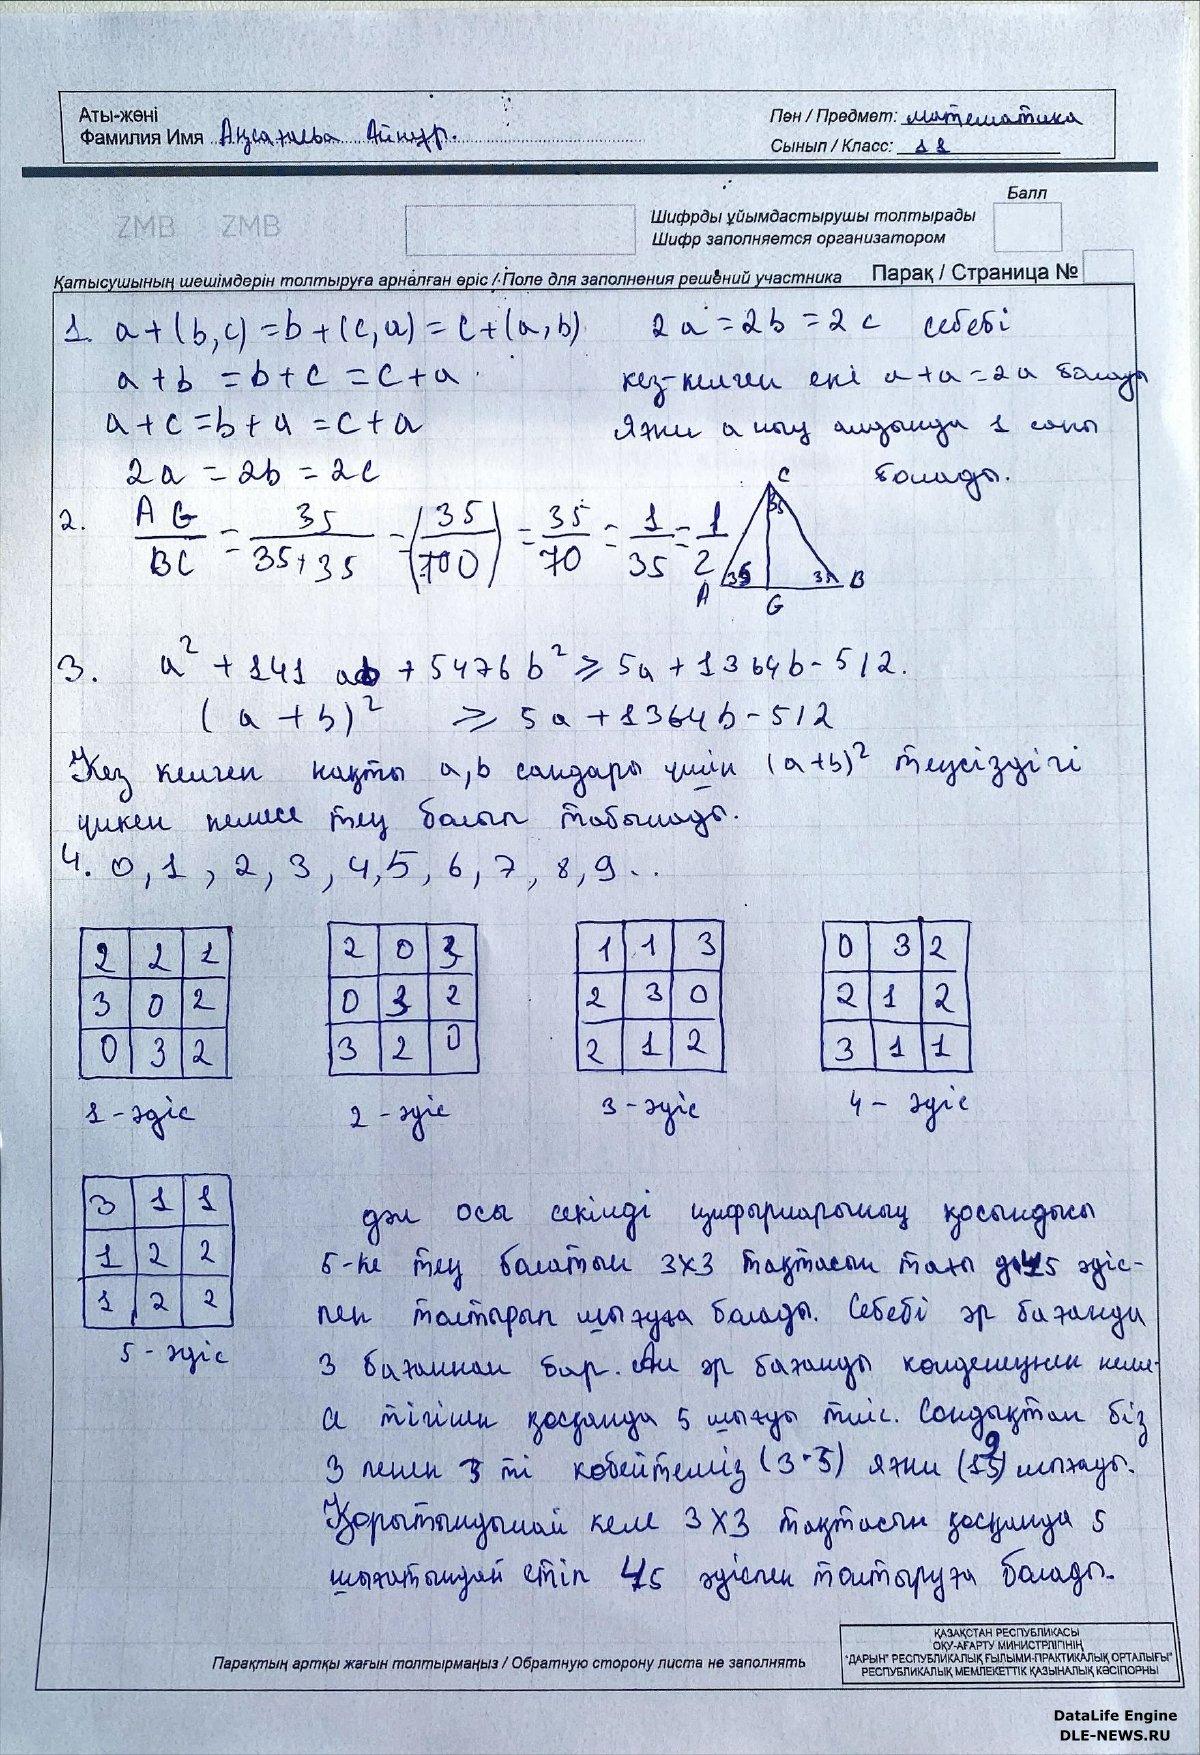 Аты-жөні
Фамилия Имя Айнұр.
Пән / Предмет: математика
Сынып / Класс: 11
ZMB ZMB
Балл
Шифрды ұйымдастырушы толтырады
Шифр заполняется организатором
Қатысушының шешімдерін толтыруға арналған өріс / Поле для заполнения решений участника
Парақ / Страница №
1. a+(b,c)=b+(c,a)=c+(a,b)
a+b =b+c =c+a
a+c=b+a =c+a
2a =2b =2c
2a=2b=2c себебі
кез-келген екі a+a=2a болады
Яғни a ның алдында 1 саны
болады.
2. AG/BC = 35/35+35 = (35/700) = 35/70 = 1/35 = 1/2
C
35
35 35
A B
G
3. a² + 141 ab + 5476b² ⩾ 5a + 1364b - 512.
(a+b)² ⩾ 5a+1364b-512
Кез келген нақты a,b сандары үшін (a+b)² теңсіздігі
үлкен немесе тең болып табылады.
4. 0,1, 2, 3, 4,5, 6, 7, 8,9..
2 2 1
3 0 2
0 3 2
1-әдіс
2 0 3
0 3 2
3 2 0
2-әдіс
1 1 3
2 3 0
2 1 2
3-әдіс
0 3 2
2 1 2
3 1 1
4- әдіс
3 1 1
1 2 2
1 2 2
5-әдіс
дәл осы секілді цифрларының қосындысы
5-ке тең болатын 3x3 тақтасын тағы да 45 әдіс-
пен толтырып шығуға болады. Себебі әр бағанда
3 бағаннан бар. Ал әр бағанды көлденеңнен неме-
се тігінен қосқанда 5 шығуы тиіс. Сондықтан біз
3 пенен 3 ті көбейтеміз (3·3) яғни шығады.
Қорытындылай келе 3X3 тақтасын қосқанда 5
шығатындай етіп 45 әдіспен толтыруға болады.
Парақтың артқы жағын толтырмаңыз / Обратную сторону листа не заполнять
ҚАЗАҚСТАН РЕСПУБЛИКАСЫ
ОҚУ-АҒАРТУ МИНИСТРЛІГІНІҢ
"ДАРЫН" РЕСПУБЛИКАЛЫҚ ҒЫЛЫМИ-ПРАКТИКАЛЫҚ ОРТАЛЫҒЫ"
РЕСПУБЛИКАЛЫҚ МЕМЛЕКЕТТІК ҚАЗЫНАЛЫҚ КӘСІПОРНЫ
DataLife Engine
DLE-NEWS.RU